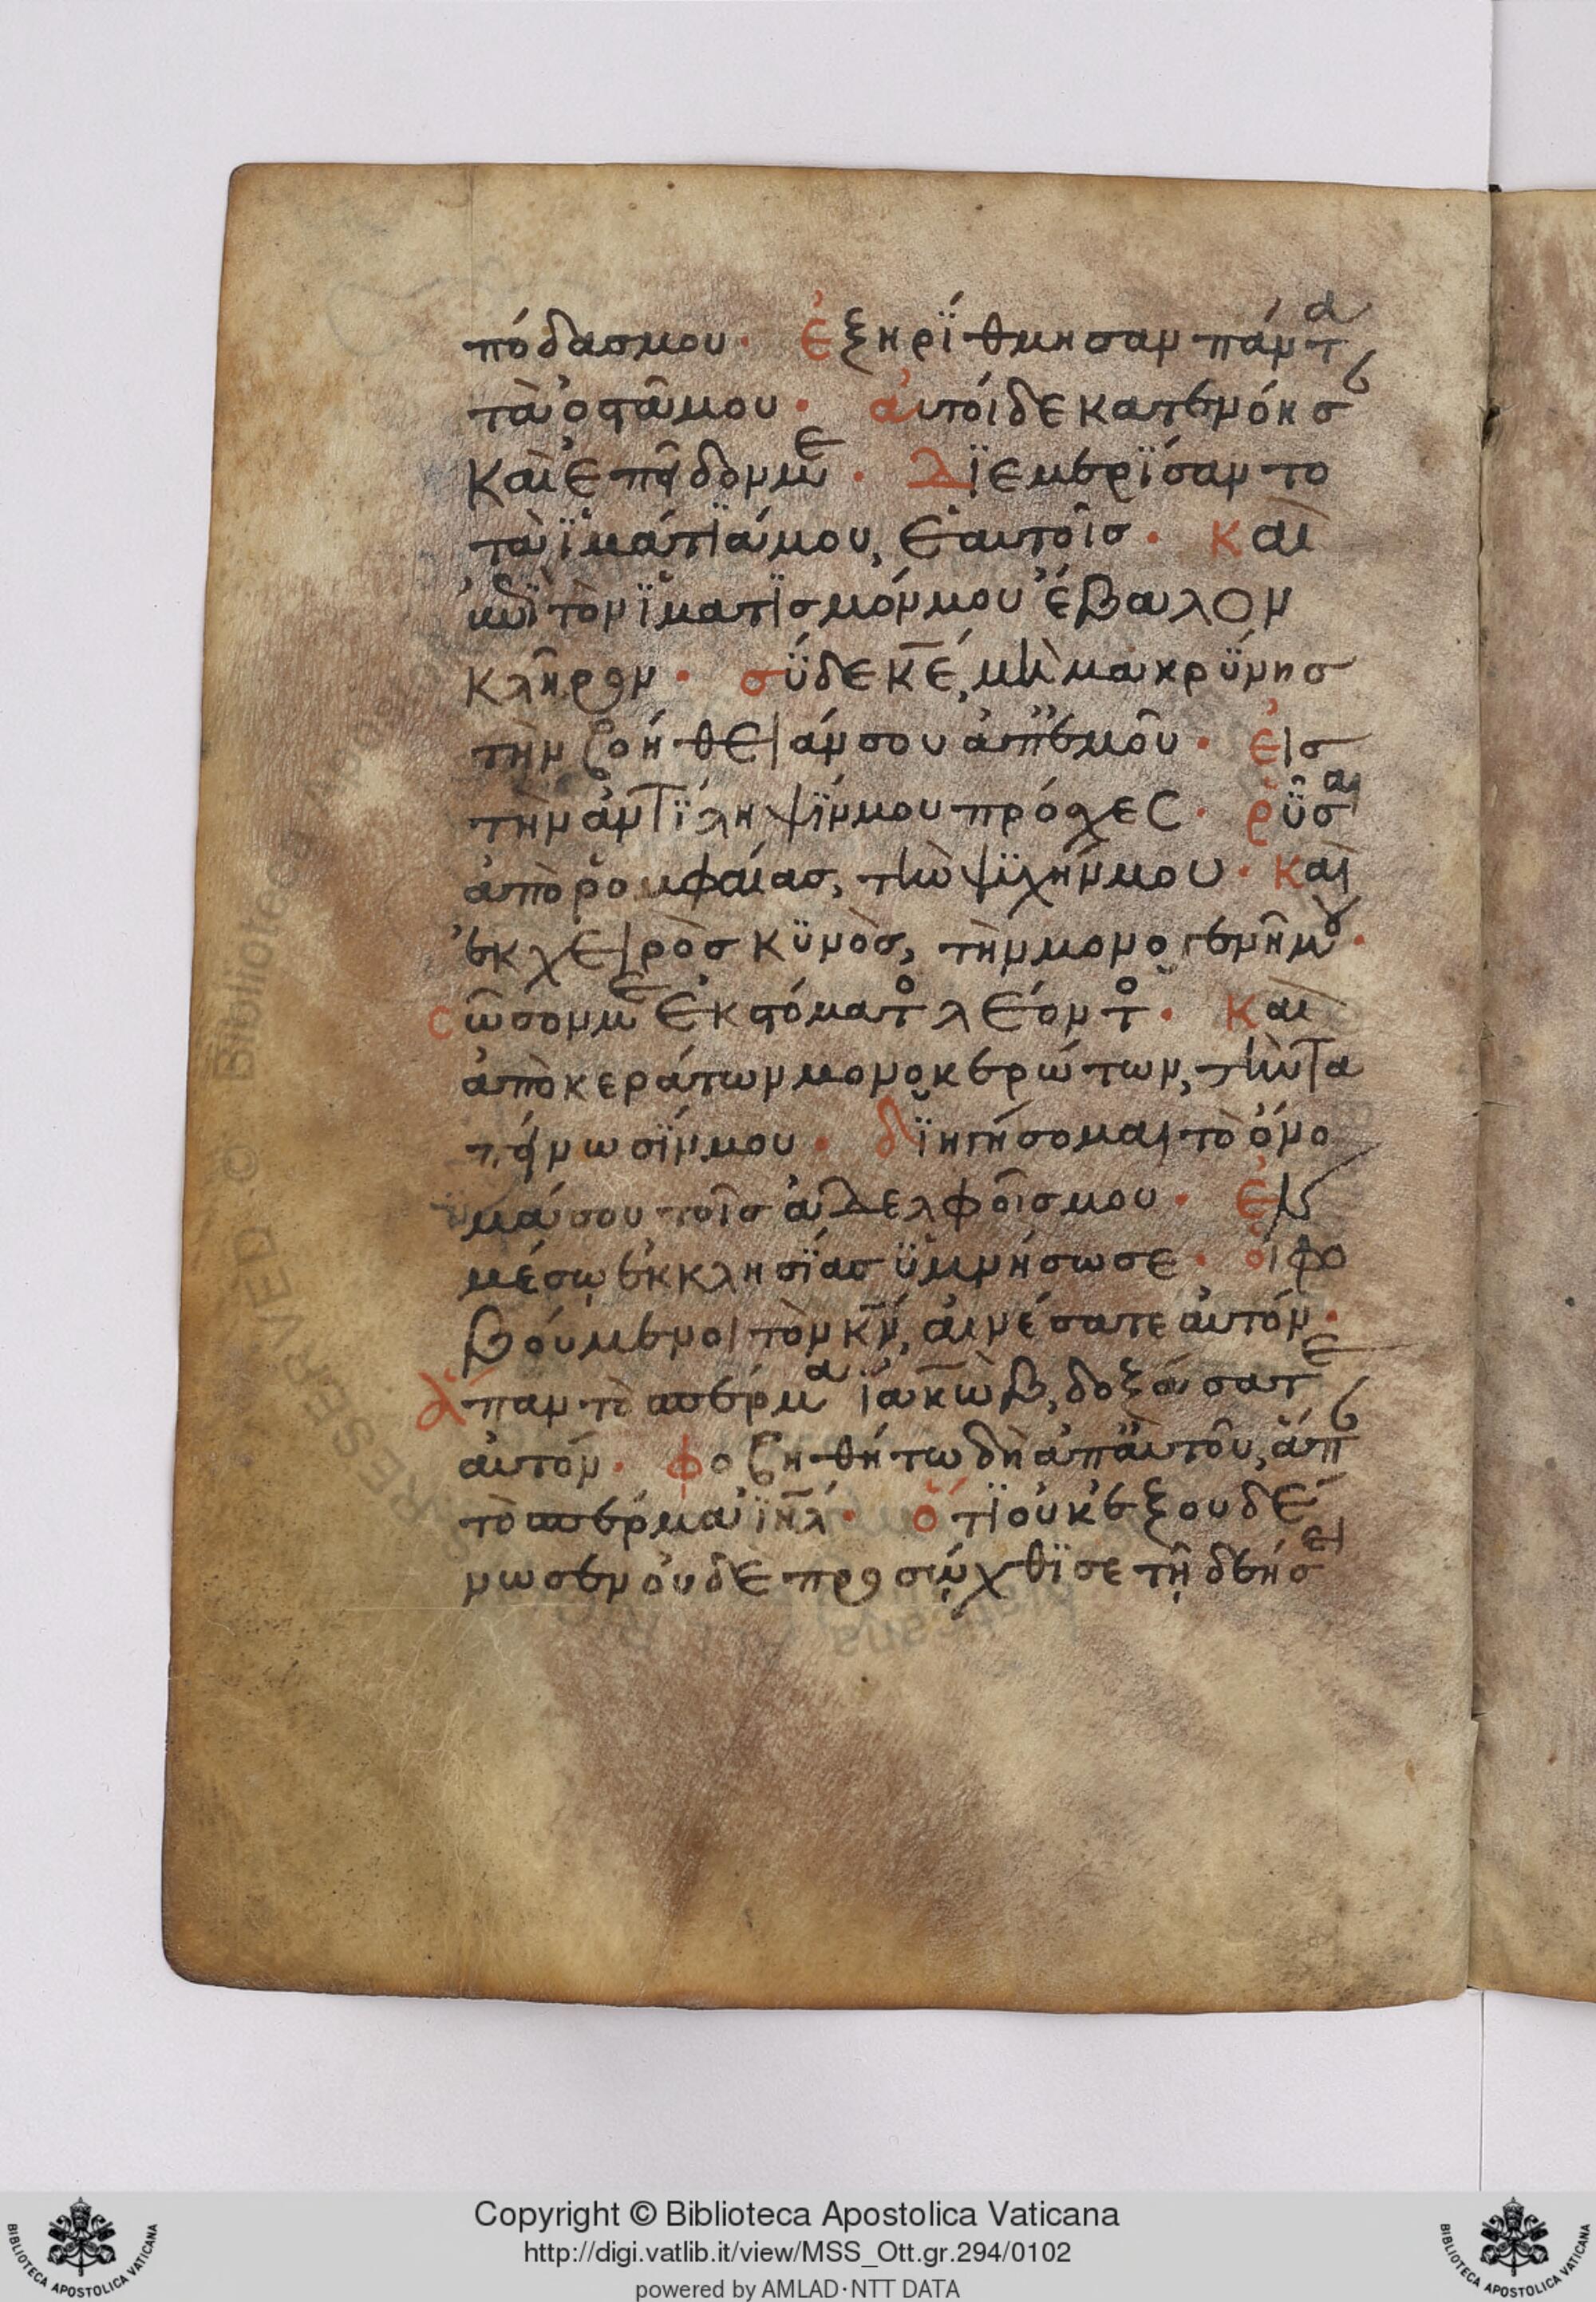 πόδασμου · ἐξηρίθμησαν πάντα
τὰ ὀστᾶμου · ἀυτόιδε κατενόησ
καὶ ἐπεῖδόνμε · Διεμερΐσαντο
τὰ ϊμάτϊάμου, ἑαυτοῖσ · καὶ
ἐπὶ τὸν ϊματϊσμόνμου ἔβαλον
κλῆρον · σὺδὲ κ̅ε̅, μὴ μακρύνησ
τὴν βοήθειάνσου ἀπεμοῦ · εἰσ
τὴν ἀντίληψϊνμου πρόσχες · ῥῦσαι
ἀπὸ ῥομφαίασ, τὴν ψϊχήνμου · καὶ
ἐκ χειρὸσ κϋνὸσ, τὴν μονογενῆμου ·
σῶσονμε ἐκ στόματος λέοντος · καὶ
ἀπὸ κεράτων μονοκερώτων, τὴν τα
πείνωσίνμου · διηγήσομαι τὸ ὄνο
μάσου τοῖσ ἀδελφοῖσμου · ἐν
μέσῳ ἐκκλησίασ ὑμνήσωσε · οἱ φο
βούμενοι τὸν κ̅ν̅, αἰνέσατε ἀυτόν ·
ἅπαν τὸ σπέρμα ἰακὼβ, δοξάσατε
ἀυτόν · φοβηθήτω δὴ ἀπἀυτοῦ, ἅπ
τὸ σπέρμα ι̅η̅λ̅ · ὅτι οὐκ ἐξουδέ
νωσεν οὐδὲ προσώχθϊσε τῇ δεήσει
Copyright © Biblioteca Apostolica Vaticana
http://digi.vatlib.it/view/MSS_Ott.gr.294/0102
powered by AMLAD·NTT DATA
BIBLIOTECA APOSTOLICA VATICANA
BIBLIOTECA APOSTOLICA VATICANA